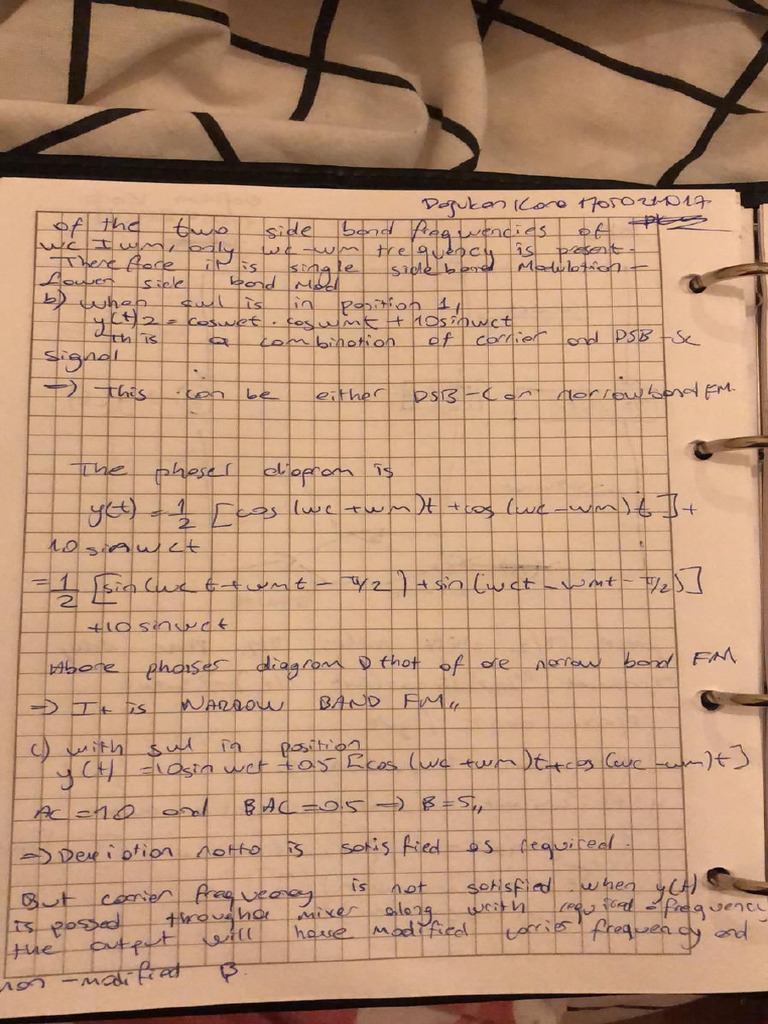 Dogukan Kara
of the two side band frequencies of
wc ± wm, only wc-wm frequency is present.
Therefore it is single sideband Modulation -
Lower side band Mod
b) when sw1 is in position 1,
y(t)2 = coswct . coswmt + 10sinwct
this is a combination of carrier and DSB-Sc
signal
-> This can be either DSB-C or narrowband FM.
The phaser diagram is
y(t) = 1/2 [cos (wc +wm)t +cos (wc-wm) t] +
10 sinwct
= 1/2 [sin(wc t+wmt - π/2) + sin(wct -wmt- π/2)]
+10 sinwct
Above phaises diagram that of narrow band FM
=> It is NARROW BAND FM,,
c) with sw1 in position
y(t) =10sin wct +0.5 [cos (wc +wm)t+cos (wc -wm)t]
Ac =10 and BAC =0.5 => B=5,,
=> notto is satisfied as required.
But carrier frequency is not satisfied when y(t)
is passed through a mixer along with required frequency
the output will have modified carrier frequency and
non -modified B.